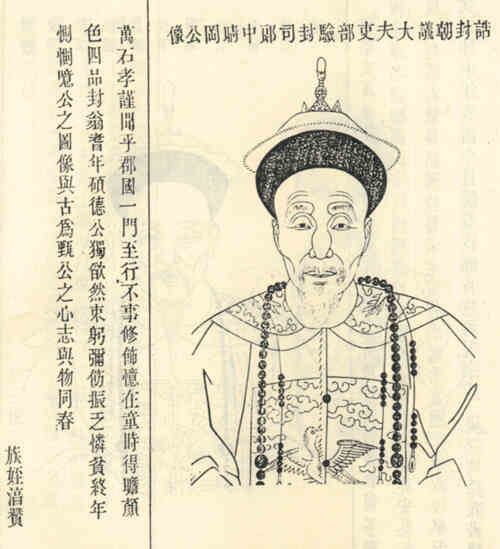 誥封朝議大夫吏部驗封司郎中晴岡公像
萬石孝謹聞乎郡國一門至行不事修飾憶在童時得瞻顏
色四品封翁耆年碩德公獨欿然束躬彌仂振乏憐貧終年
惻惻噫公之圖像與古爲甄公之心志與物同春
族姪湇贊